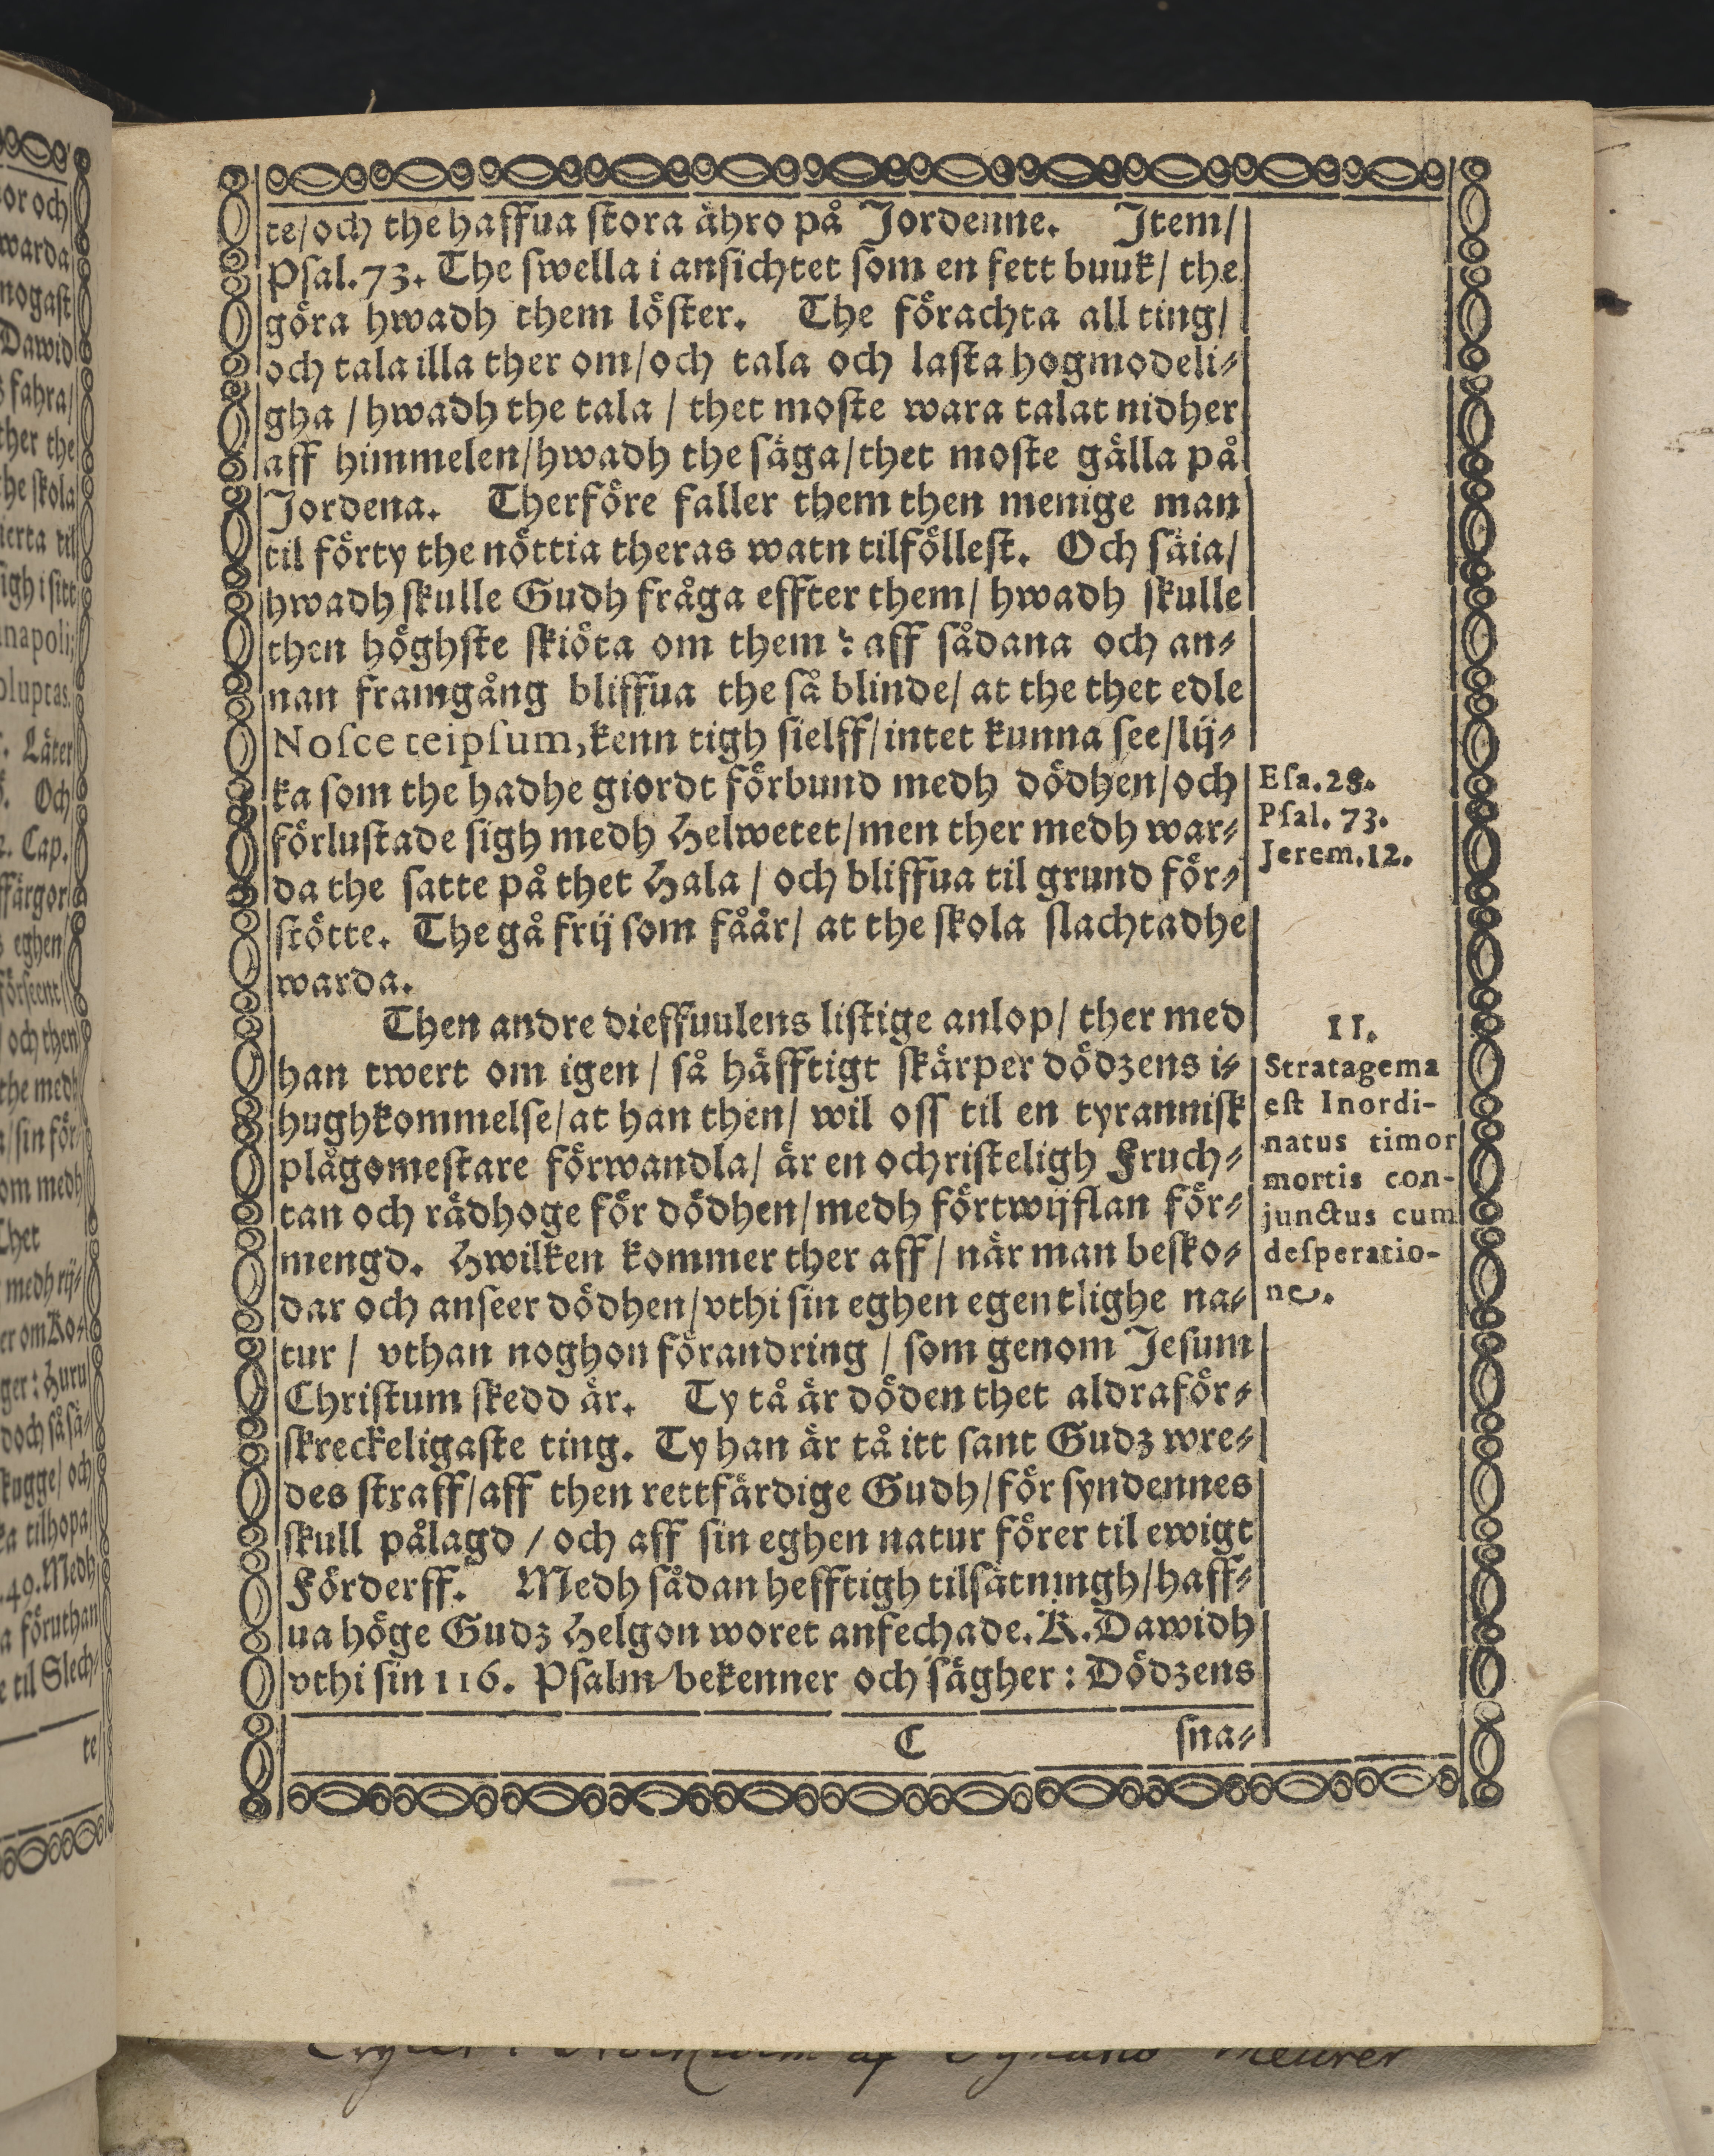 te/och the haffua stora ähro på Jordenne. Item/
Psal. 73. The swella i ansichtet som en fett buuk/ the
göra hwadh them löster. The förachta all ting/
och tala illa ther om/och tala och lasta hogmodeli-
gha / hwadh the tala / thet moste wara talat nidher
aff himmelen/hwadh the säga/thet moste gälla på
Jordena. Therföre faller them then menige man
til förty the nöttia theras watn tilföllest. Och säia/
hwadh skulle Gudh fråga effter them/ hwadh skulle
then höghste skiöta om them? aff sådana och an-
nan framgång bliffua the så blinde/ at the thet edle
Nosce teipsum, kenn tigh sielff/intet kunna see/lij-
ka som the hadhe giordt förbund medh dödhen/och
förlustade sigh medh Helwetet/men ther medh war-
da the satte på thet Hala / och bliffua til grund för-
stötte. The gå frij som fåår/ at the skola slachtadhe
warda.
Esa. 28.
Psal. 73.
Jerem. 12.
Then andre dieffuulens listige anlop/ ther med
han twert om igen / så häfftigt skärper dödzens i-
hughkommelse/at han then/ wil oss til en tyrannisk
plågomestare förwandla/ är en ochristeligh Fruch-
tan och rädhoge för dödhen/medh förtwijflan för-
mengd. Hwilken kommer ther aff / när man besko-
dar och anseer dödhen/vthi sin eghen egentlighe na-
tur / vthan noghon förandring / som genom Jesum
Christum skedd är. Ty tå är döden thet aldraför-
skreckeligaste ting. Ty han är tå itt sant Gudz wre-
des straff/aff then rettfärdige Gudh/för syndennes
skull pålagd / och aff sin eghen natur förer til ewigt
Förderff. Medh sådan hefftigh tilsätningh/haff-
ua höge Gudz Helgon woret anfechade. K. Dawidh
vthi sin 116. Psalm bekenner och sägher: Dödzens
II.
Stratagema
est Inordi-
natus timor
mortis con-
junctus cum
desperatio-
ne.
C sna-